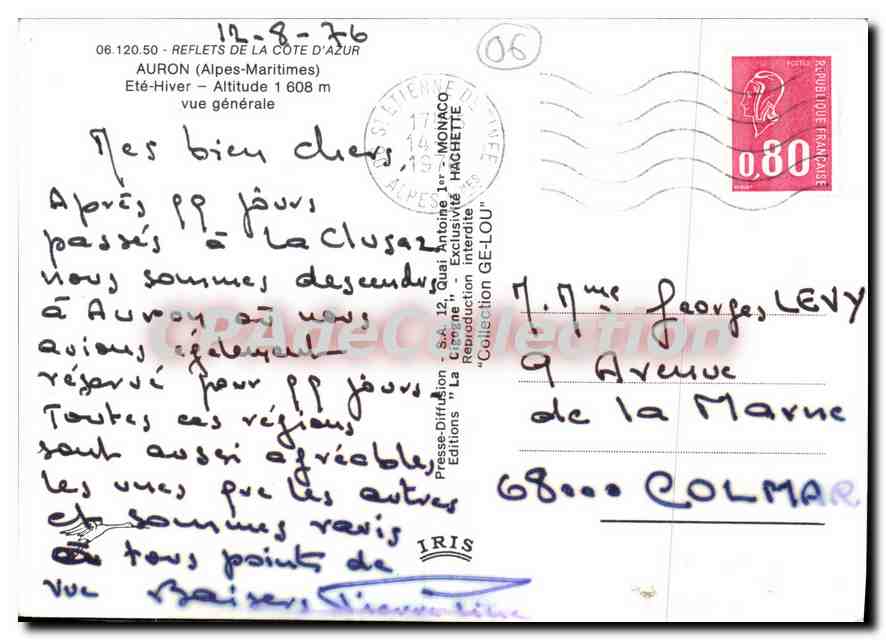 12-8-76
06
06.120.50 - REFLETS DE LA COTE D'AZUR
AURON (Alpes-Maritimes)
Eté-Hiver – Altitude 1 608 m
vue générale
Mes bien chers,
Après 99 jours
passés à La Clusaz
nous sommes descendus
à Auron où nous
avions également
réservé pour 99 jours.
Toutes ces régions
sont aussi agréables
les unes que les autres
et sommes ravis
à tous points de
vue Baisers
Presse-Diffusion - S.A. 12, Quai Antoine 1er - MONACO
Editions "La Cigogne" - Exclusivité HACHETTE
Reproduction interdite
"Collection GE-LOU"
IRIS
ST ETIENNE DE TINEE
ALPES Mmes
POSTES
REPUBLIQUE FRANÇAISE
0,80
M. Mme Georges LEVY
9 Avenue
de la Marne
68000 COLMAR
CPArteCollection